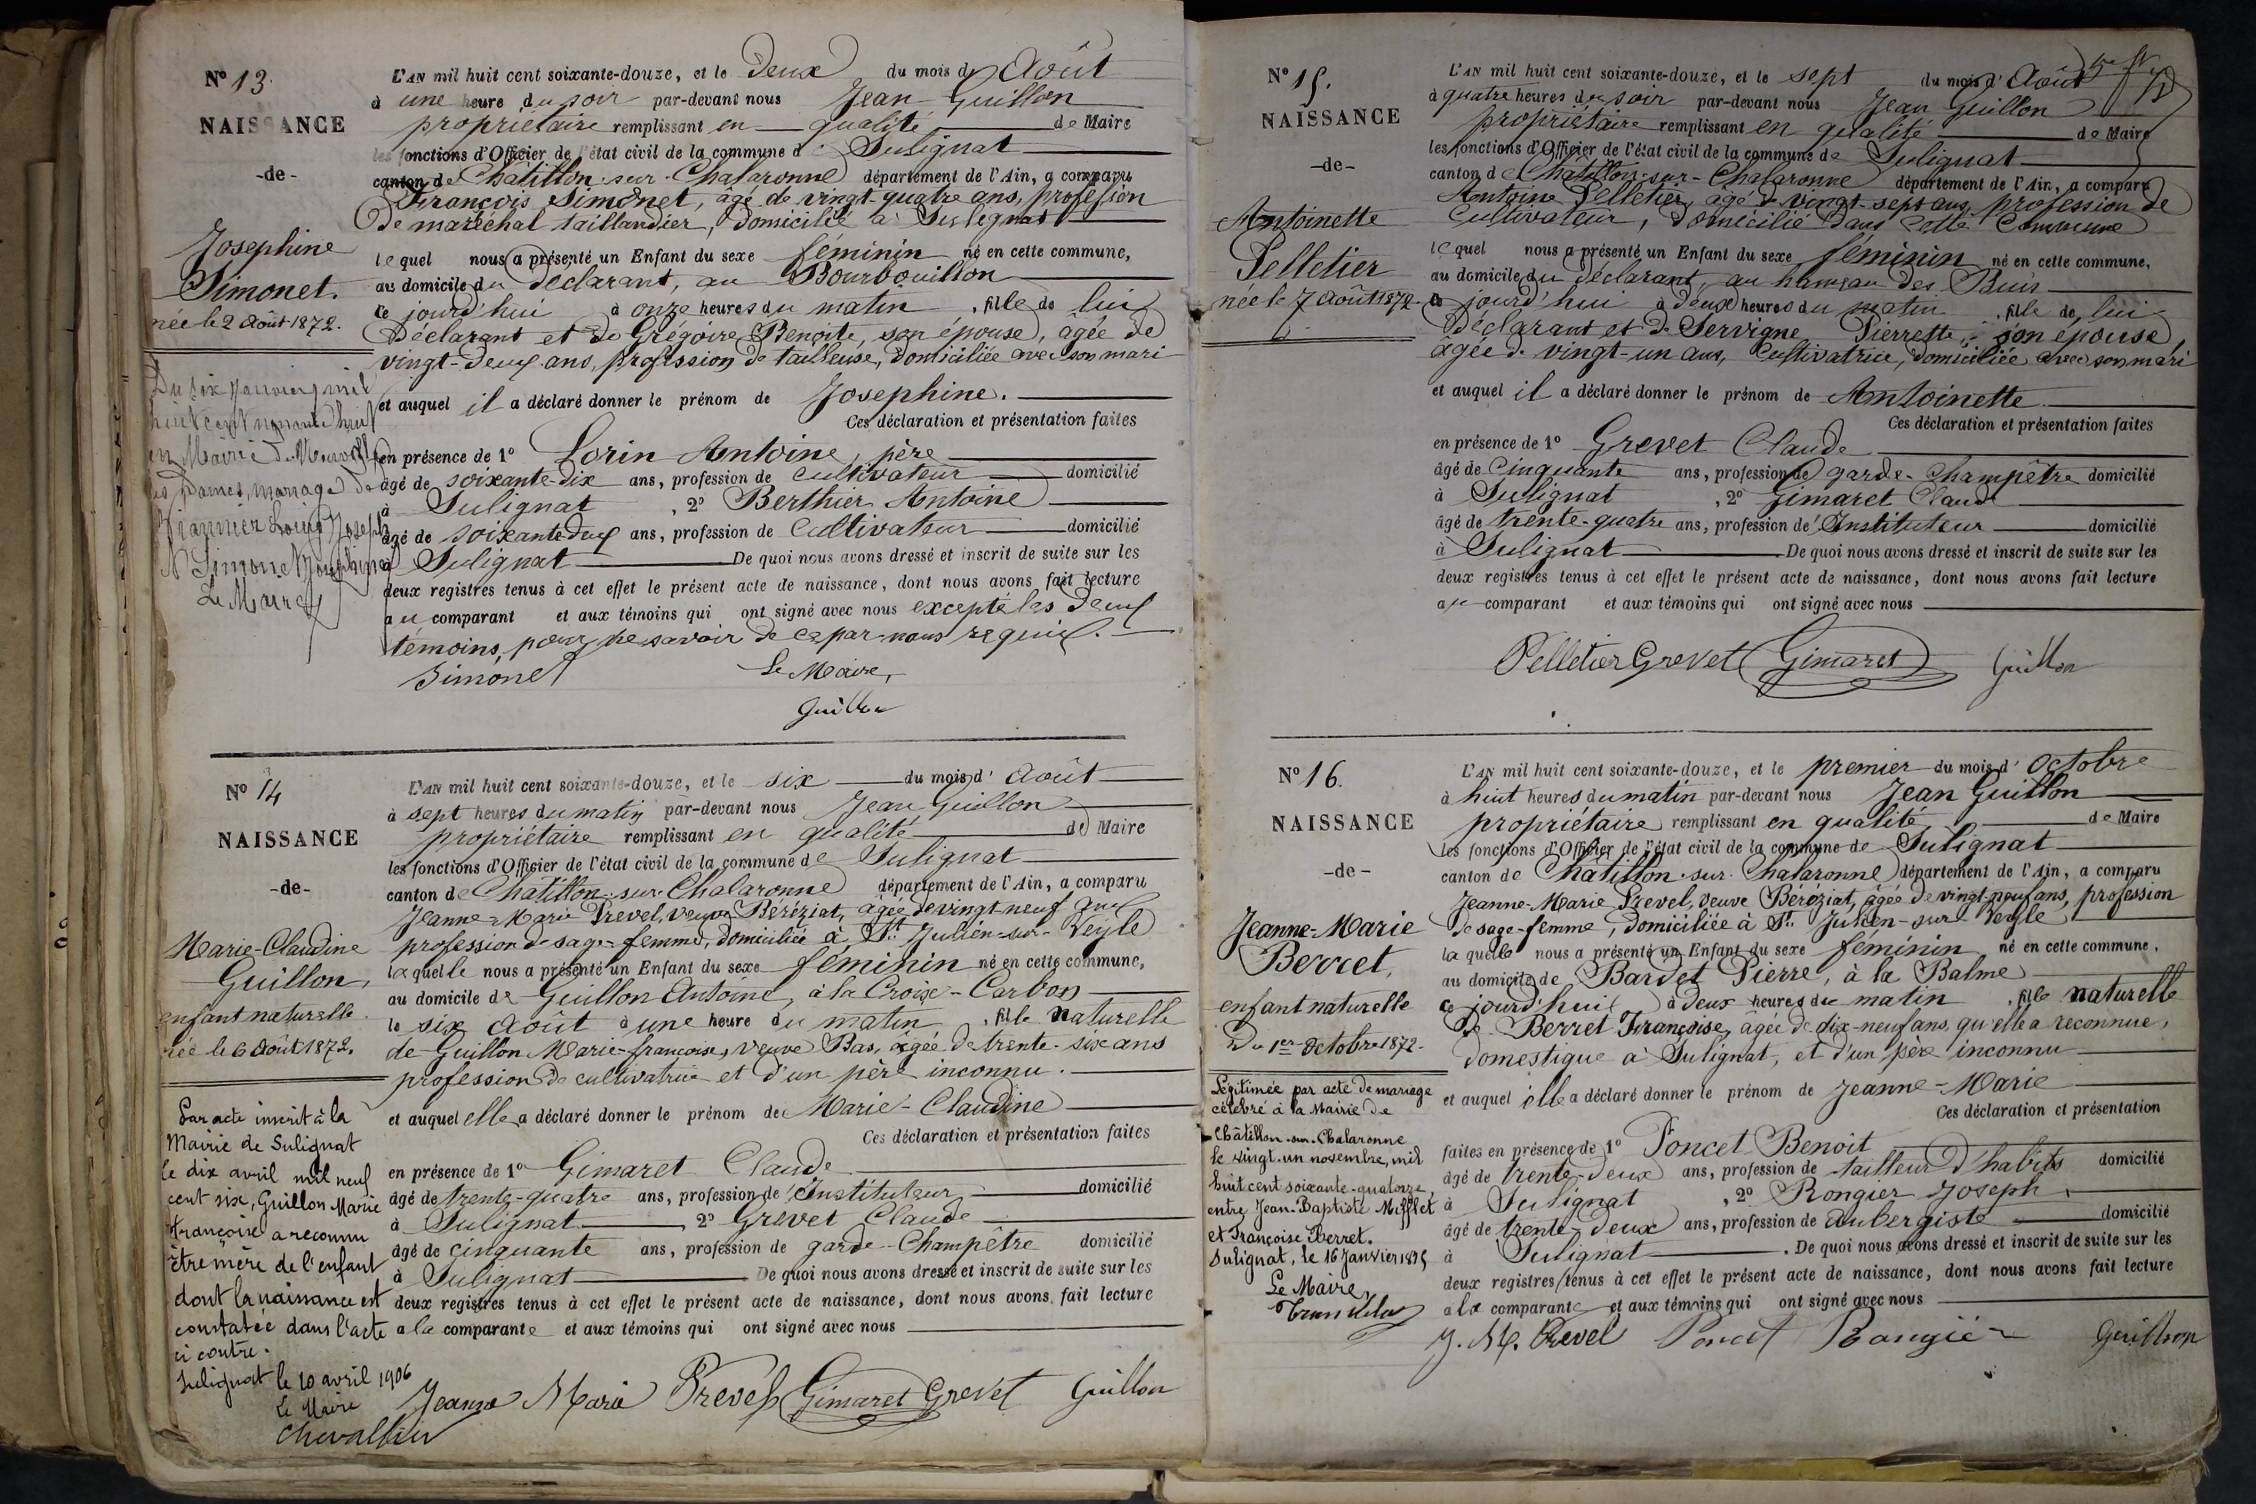 N° 13.
NAISSANCE
-de-
Josephine
Simonet.
née le 2 Août 1872.
Du six Janvier mil
huit cent nonante huit
en Mairie de
les Dames, mariage de
Louis Joseph
& Simonet Josephine
Le Maire
L'AN mil huit cent soixante-douze, et le deux du mois d'Août
à une heure du soir par-devant nous Jean Guillon
propriétaire remplissant en qualité de Maire
les fonctions d'Officier de l'état civil de la commune de Sulignat
canton de Châtillon-sur-Chalaronne département de l'Ain, a comparu
François Simonet, âgé de vingt-quatre ans, profession
de maréchal taillandier, domicilié à Sulignat
lequel nous a présenté un Enfant du sexe féminin né en cette commune,
au domicile du déclarant, au Bourbouillon
ce jourd'hui à onze heures du matin, fille de lui
déclarant et de Grégoire Benoite, son épouse, âgée de
vingt-deux ans, profession de tailleuse, domiciliée avec son mari
et auquel il a déclaré donner le prénom de Josephine.
Ces déclaration et présentation faites
en présence de 1° Lorin Antoine, père
âgé de soixante-dix ans, profession de cultivateur domicilié
à Sulignat, 2° Berthier Antoine
âgé de soixante-deux ans, profession de cultivateur domicilié
à Sulignat De quoi nous avons dressé et inscrit de suite sur les
deux registres tenus à cet effet le présent acte de naissance, dont nous avons fait lecture
au comparant et aux témoins qui ont signé avec nous excepté les deux
témoins, pour ne savoir de ce par nous requis.
Simonet Le Maire,
Guillon
N° 14
NAISSANCE
-de-
Marie-Claudine
Guillon,
enfant naturelle
née le 6 Août 1872.
Par acte inscrit à la
Mairie de Sulignat
le dix avril mil neuf
cent six, Guillon Marie
Françoise a reconnu
être mère de l'enfant
dont la naissance est
constatée dans l'acte
ci contre.
Sulignat le 10 avril 1906
Le Maire
Chevallier
L'AN mil huit cent soixante-douze, et le six du mois d'Août
à sept heures du matin par-devant nous Jean Guillon
propriétaire remplissant en qualité de Maire
les fonctions d'Officier de l'état civil de la commune de Sulignat
canton de Châtillon-sur-Chalaronne département de l'Ain, a comparu
Jeanne-Marie Prevel, veuve Béréziat, âgée de vingt-neuf ans
profession de sage-femme, domiciliée à St. Julien-sur-Veyle
laquelle nous a présenté un Enfant du sexe féminin né en cette commune,
au domicile de Guillon Antoine, à la Croise-Carbon
le six Août à une heure du matin, fille naturelle
de Guillon Marie-françoise, veuve Bas, âgée de trente-six ans
profession de cultivatrice et d'un père inconnu.
et auquel elle a déclaré donner le prénom de Marie-Claudine
Ces déclaration et présentation faites
en présence de 1° Gimaret Claude
âgé de trente-quatre ans, profession de Instituteur domicilié
à Sulignat, 2° Grevet Claude
âgé de cinquante ans, profession de garde-Champêtre domicilié
à Sulignat De quoi nous avons dressé et inscrit de suite sur les
deux registres tenus à cet effet le présent acte de naissance, dont nous avons fait lecture
a la comparante et aux témoins qui ont signé avec nous
Jeanne Marie Prevel Gimaret Grevet Guillon
N° 15.
NAISSANCE
-de-
Antoinette
Pelletier
née le 7 Août 1872
L'AN mil huit cent soixante-douze, et le sept du mois d'Août
à quatre heures du soir par-devant nous Jean Guillon
propriétaire remplissant en qualité de Maire
les fonctions d'Officier de l'état civil de la commune de Sulignat
canton de Châtillon-sur-Chalaronne département de l'Ain, a comparu
Antoine Pelletier, âgé de vingt-sept ans, profession de
Cultivateur, domicilié dans cette commune
lequel nous a présenté un Enfant du sexe féminin né en cette commune,
au domicile du déclarant, au hameau des Buis
ce jourd'hui à deux heures du matin, fille de lui
déclarant et de Servigne Pierrette, son épouse
âgée de vingt-un ans, Cultivatrice, domiciliée avec son mari
et auquel il a déclaré donner le prénom de Antoinette
Ces déclaration et présentation faites
en présence de 1° Grevet Claude
âgé de cinquante ans, profession de garde-Champêtre domicilié
à Sulignat, 2° Gimaret Claude
âgé de trente-quatre ans, profession d'Instituteur domicilié
à Sulignat De quoi nous avons dressé et inscrit de suite sur les
deux registres tenus à cet effet le présent acte de naissance, dont nous avons fait lecture
au comparant et aux témoins qui ont signé avec nous
Pelletier Grevet Gimaret Guillon
N° 16.
NAISSANCE
-de-
Jeanne-Marie
Berret,
enfant naturelle
Du 1er Octobre 1872.
Légitimée par acte de mariage
célébré à la Mairie de
Châtillon-sur-Chalaronne
le vingt-un novembre, mil
huit cent soixante-quatorze,
entre Jean-Baptiste Mifflet
et Françoise Berret.
Sulignat, le 16 Janvier 1875
Le Maire,
L'AN mil huit cent soixante-douze, et le premier du mois d'Octobre
à huit heures du matin par-devant nous Jean Guillon
propriétaire remplissant en qualité de Maire
les fonctions d'Officier de l'état civil de la commune de Sulignat
canton de Châtillon-sur-Chalaronne département de l'Ain, a comparu
Jeanne-Marie Prevel, veuve Béréziat, âgée de vingt-neuf ans, profession
de sage-femme, domiciliée à St. Julien-sur-Veyle
laquelle nous a présenté un Enfant du sexe féminin né en cette commune,
au domicile de Bardet Pierre, à la Balme
ce jourd'hui à deux heures du matin, fille naturelle
de Berret Françoise, âgée de dix-neuf ans, qu'elle a reconnue,
domestique à Sulignat, et d'un père inconnu
et auquel elle a déclaré donner le prénom de Jeanne-Marie
Ces déclaration et présentation
faites en présence de 1° Poncet Benoît
âgé de trente-deux ans, profession de tailleur d'habits domicilié
à Sulignat, 2° Rongier Joseph,
âgé de trente-deux ans, profession de aubergiste domicilié
à Sulignat. De quoi nous avons dressé et inscrit de suite sur les
deux registres tenus à cet effet le présent acte de naissance, dont nous avons fait lecture
a la comparante et aux témoins qui ont signé avec nous
J. M. Prevel Poncet Rongier Guillon